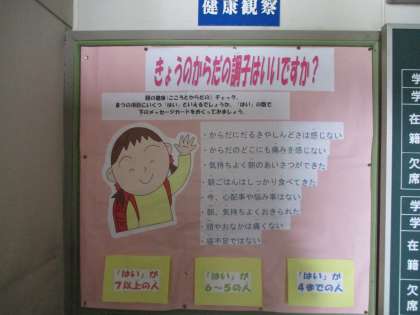 健康観察
きょうのからだの調子はいいですか？
朝の健康(こころとからだの)チェック。
8つの項目にいくつ「はい」といえるでしょうか。「はい」の数で
下のメッセージカードをめくってみましょう。
・からだにだるさやしんどさは感じない
・からだのどこにも痛みを感じない
・気持ちよく朝のあいさつができた
・朝ごはんはしっかり食べてきた
・今、心配事や悩み事はない
・朝、気持ちよくおきられた
・頭やおなかは痛くない
・寝不足ではない
「はい」が
7以上の人
「はい」が
6〜5の人
「はい」が
4までの人
学
学
在
籍
欠
席
学
学
在
籍
欠
席